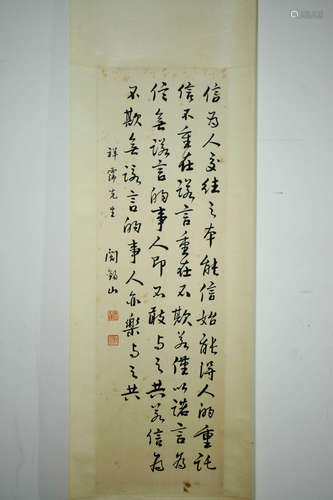 信为人交往之本能信始能得人的重託
信不重在诺言重在不欺若僅以诺言为
信無诺言的事人即不敢与之共若信为
不欺無诺言的事人亦樂与之共
祥霈先生
閻錫山